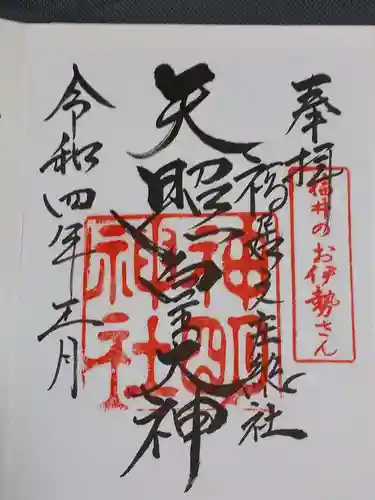 奉拝
福井のお伊勢さん
天照皇大神
神明
神社
令和四年五月